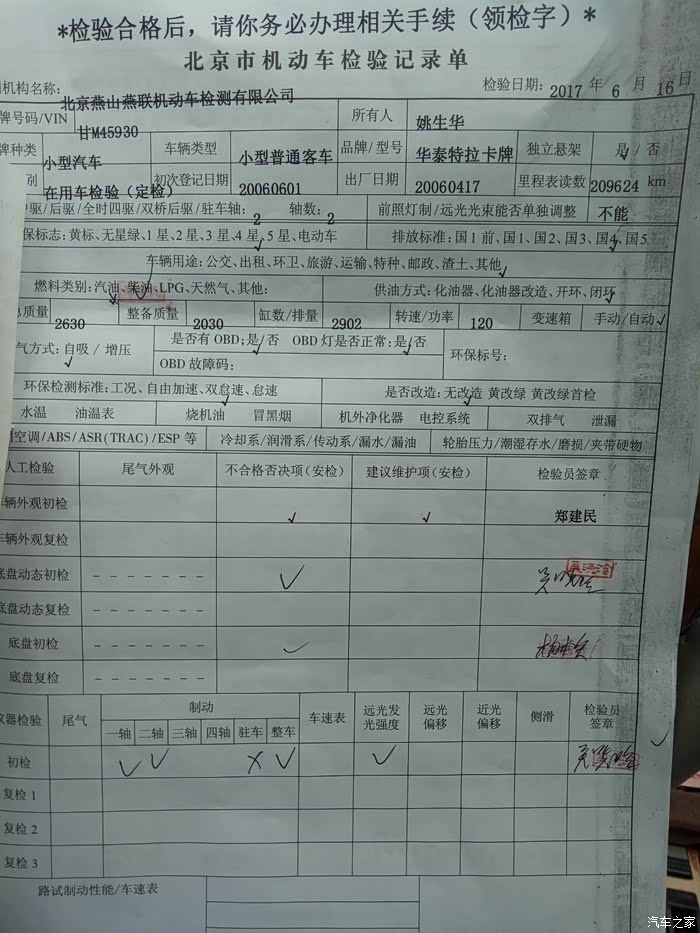 *检验合格后，请你务必办理相关手续（领检字）*
北京市机动车检验记录单
机构名称：北京燕山燕联机动车检测有限公司 检验日期：2017 年 6 月 16日
牌号码/VIN 甘M45930 所有人 姚生华
牌种类 小型汽车 车辆类型 小型普通客车 品牌/型号 华泰特拉卡牌 独立悬架 是/否
别 在用车检验（定检） 初次登记日期 20060601 出厂日期 20060417 里程表读数 209624 km
驱/后驱/全时四驱/双桥后驱/驻车轴：2 轴数：2 前照灯制/远光光束能否单独调整 不能
保标志：黄标、无星绿、1星、2星、3星、4星、5星、电动车 排放标准：国1前、国1、国2、国3、国4、国5
车辆用途：公交、出租、环卫、旅游、运输、特种、邮政、渣土、其他
燃料类别：汽油、柴油、LPG、天然气、其他： 供油方式：化油器、化油器改造、开环、闭环
总质量 2630 整备质量 2030 缸数/排量 2902 转速/功率 120 变速箱 手动/自动
气方式：自吸 / 增压 是否有 OBD：是/否 OBD 灯是否正常：是/否 环保标号：
OBD 故障码：
环保检测标准：工况、自由加速、双怠速、怠速 是否改造：无改造 黄改绿 黄改绿首检
水温 油温表 烧机油 冒黑烟 机外净化器 电控系统 双排气 泄漏
空调/ABS/ASR(TRAC)/ESP 等 冷却系/润滑系/传动系/漏水/漏油 轮胎压力/潮湿存水/磨损/夹带硬物
人工检验 尾气外观 不合格否决项（安检） 建议维护项（安检） 检验员签章
车辆外观初检 郑建民
车辆外观复检
底盘动态初检
底盘动态复检
底盘初检
底盘复检
仪器检验 尾气 制动 车速表 远光发光强度 远光偏移 近光偏移 侧滑 检验员签章
一轴 二轴 三轴 四轴 驻车 整车
初检
复检 1
复检 2
复检 3
路试制动性能/车速表
汽车之家